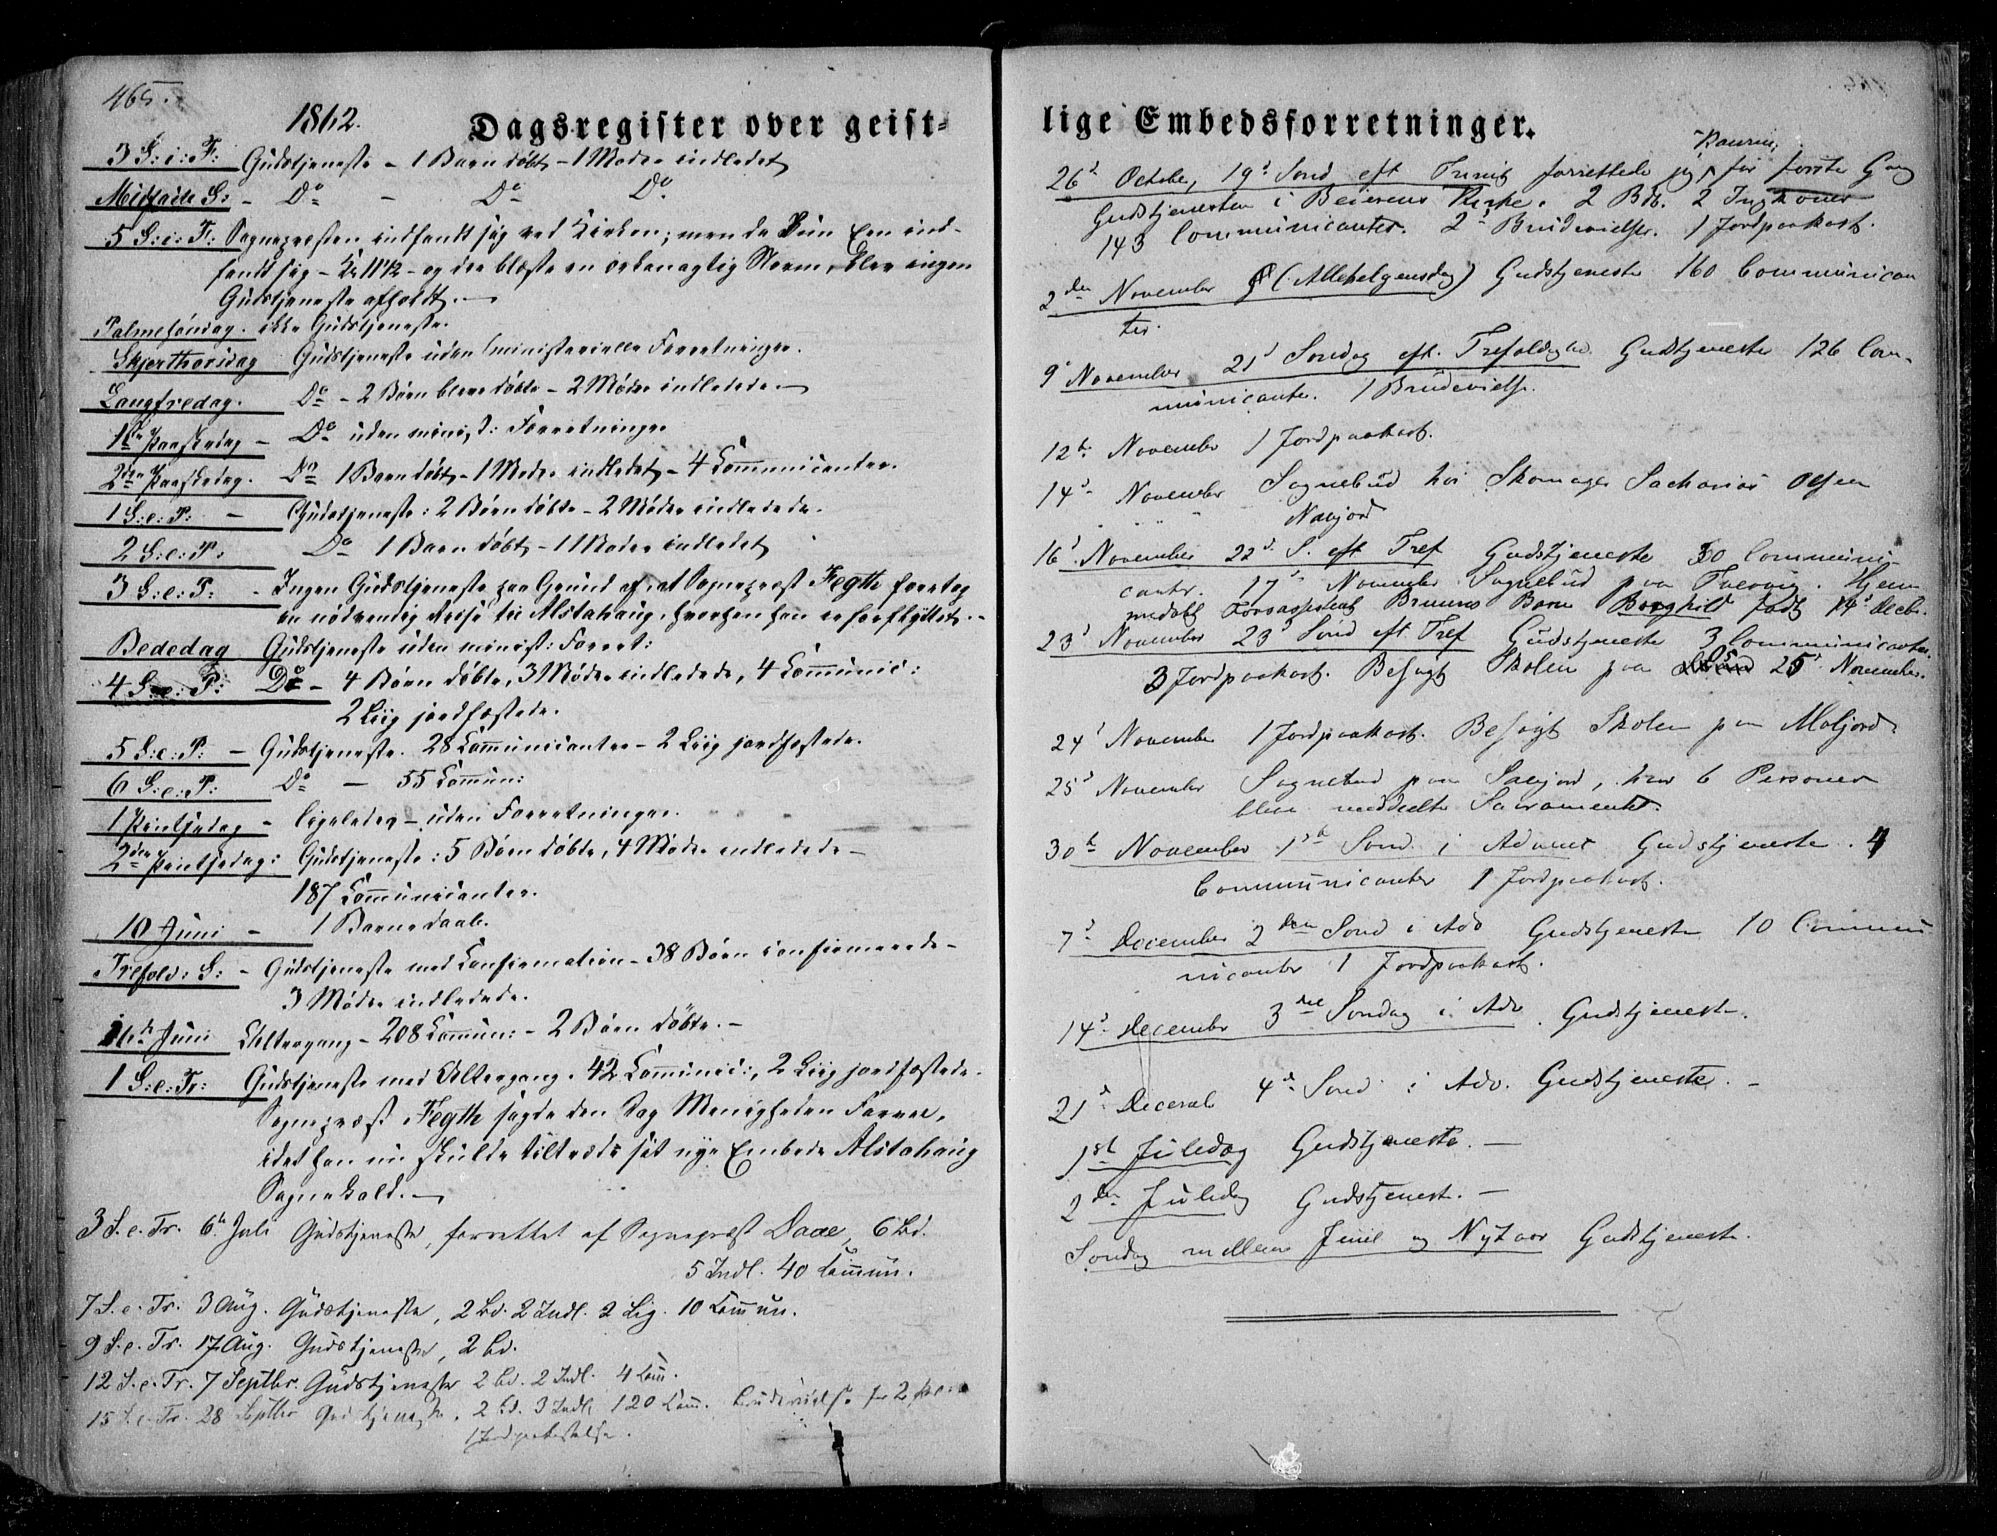 465.
1862.
Dagsregister over geist-
3 S: i: F: Gudstjeneste - 1 Barn døbt - 1 Moder indledet
Midfaste S: - Do - Do Do
5 S: i: F: Sognepræsten indfandt sig ved Kirken; men da kun Een ind-
fandt sig - Kl 11½ - og der blæste en orkanagtig Storm, blev ingen
Gudstjeneste afholdt. -
Palmesøndag. ikke Gudstjeneste.
Skjerthorsdag Gudstjeneste uden ministerielle Forretninger.
Langfredag. Do - 2 Børn bleve døbte - 2 Mødre indledede. -
1ste Paaskedag - Do uden minist: Forretninger
2den Paaskedag. Do 1 Barn døbt - 1 Moder indledet - 4 Communicanter.
1 S: e: P: - Gudstjeneste: 2 Børn døbte - 2 Mødre indledede.
2 S: e: P: Do 1 Barn døbt - 1 Moder indledet
3 S: e: P: - Ingen Gudstjeneste paa Grund af, at Sognepræst Fegth foretog
en nødvendig Reise til Alstahaug, hvorhen han er forflyttet. -
Bededag Gudstjeneste uden minist: Forret:
4 S: e: P: Do - 4 Børn døbte, 3 Mødre indledede, 4 Communic:
2 Liig jordfæstede.
5 S: e: P: - Gudstjeneste. 28 Communicanter - 2 Liig jordfæstede.
6 S: e: P: Do - 55 Commun:
1 Pintsedag - ligeledes - uden Forretninger.
2den Pintsedag: Gudstjeneste: 5 Børn døbte, 4 Mødre indledede -
187 Communicanter.
10 Juni - 1 Barnedaab.
Trefold: S: - Gudstjeneste med Confirmation - 38 Børn confirmerede -
3 Mødre indledede.
16de Juni Altergang - 208 Commun: - 2 Børn døbte. -
1 S: e: Tr: Gudstjeneste med Altergang. 42 Communic:, 2 Liig jordfæstede.
Sognepræst Fegth sagde den Dag Menigheden Farvel,
idet han nu skulde tiltræde sit nye Embede Alstahaug
Sognekald. -
3 S. e. Tr. 6te Juli Gudstjeneste, forrettet af Sognepræst Daae, 6 Bd.
5 Indl. 40 Commun.
7 S. e. Tr. 3 Aug. Gudstjeneste, 2 Bd. 2 Indl. 2 Lig. 10 Commun.
9 S. e. Tr. 17 Aug. Gudstjeneste, 2 Bd.
12 S. e. Tr. 7 Septbr. Gudstjeneste 2 Bd. 2 Indl. 4 Comm.
15 S. e. Tr. 28 Septbr Gudstjeneste. 2 Bd. 3 Indl. 120 Comm. Brudevielse for 2 Par
1 Jordpaakastelse.
lige Embedsforretninger.
26d October, 19d Sønd eft Trinit forrettede jeg, for første Gang
Gudstjenesten i Beierens Kirke. 2 Bdb. 2 Ingkoner
143 Communicanter. 2 Brudevielser. 1 Jordpaakast.
2den November (Allehelgensdag) Gudstjeneste 160 Communican
ter.
9d November 21d Søndag eft. Trefoldighed Gudstjeneste 126 Com-
municanter. 1 Brudevielse.
12te November 1 Jordpaakast.
14d November Sognebud hos Skomager Sacharias Olsen
16d November 22d S. eft Tref Gudstjeneste 30 Communi-
canter. 17d November Sognebud paa Tvervig. Hjem
medøbt Bruuns Barn Borghild født 14d Decbr.
23d November 23d Sønd eft Tref Gudstjeneste 3 Communicanter.
3 Jordpaakast. Besøgt Skolen paa 25d November.
24d November 1 Jordpaakast. Besøgt Skolen paa Moljord
25d November Sognebud paa, hvor 6 Personer
bleve meddeelte Sacramentet.
30te November 1ste Sønd. i Advent Gudstjeneste. 4
Communicanter 1 Jordpaakast.
7d December 2den Sønd i Adv Gudstjeneste 10 Commu
nicanter 1 Jordpaakast.
14d December 3die Søndag i Adv. Gudstjeneste.
21d Decemb 4d Sønd i Adv. Gudstjeneste. -
1ste Juledag Gudstjeneste. -
2den Juledag Gudstjenest. -
Søndag mellem Juul og Nytaar Gudstjeneste.